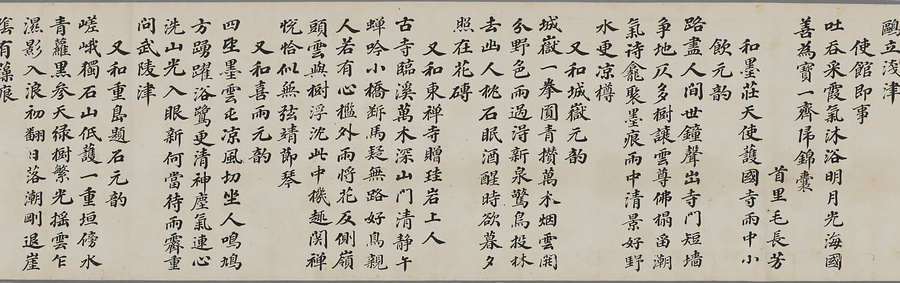 鷗立淺津
使館即事
吐吞采霞氣沐浴明月光海國
善為寶一齊歸錦囊
首里毛長芳
和墨莊天使護國寺雨中小
飲元韵
路盡人間世鐘聲出寺門短墻
爭地仄多樹讓雲尊佛榻留潮
氣詩龕聚墨痕雨中清景好野
水更凉樽
又和城嶽元韵
城嶽一拳圓青攢萬木烟雲開
分野色雨過淂新泉驚鳥投林
去幽人枕石眠酒醒時欲暮夕
照在花磚
又和東禅寺贈珪岩上人
古寺臨溪萬木深山門清靜午
蟬吟小橋斷馬疑無路好鳥親
人若有心檻外雨將花反側嶺
頭雲與樹浮沈此中機趣関禅
悅恰似無弦靖節琴
又和喜雨元韵
四坐墨雲屯凉風切坐人鳴鳩
方踴躍浴鷺更清神塵氣連心
洗山光入眼新何當待雨霽重
問武陵津
又和重島題石元韵
嵯峨獨石山低護一重垣傍水
青蘿黑參天綠樹繁光摇雲乍
濕影入浪初翻日落潮剛退崖
陰有蘚痕